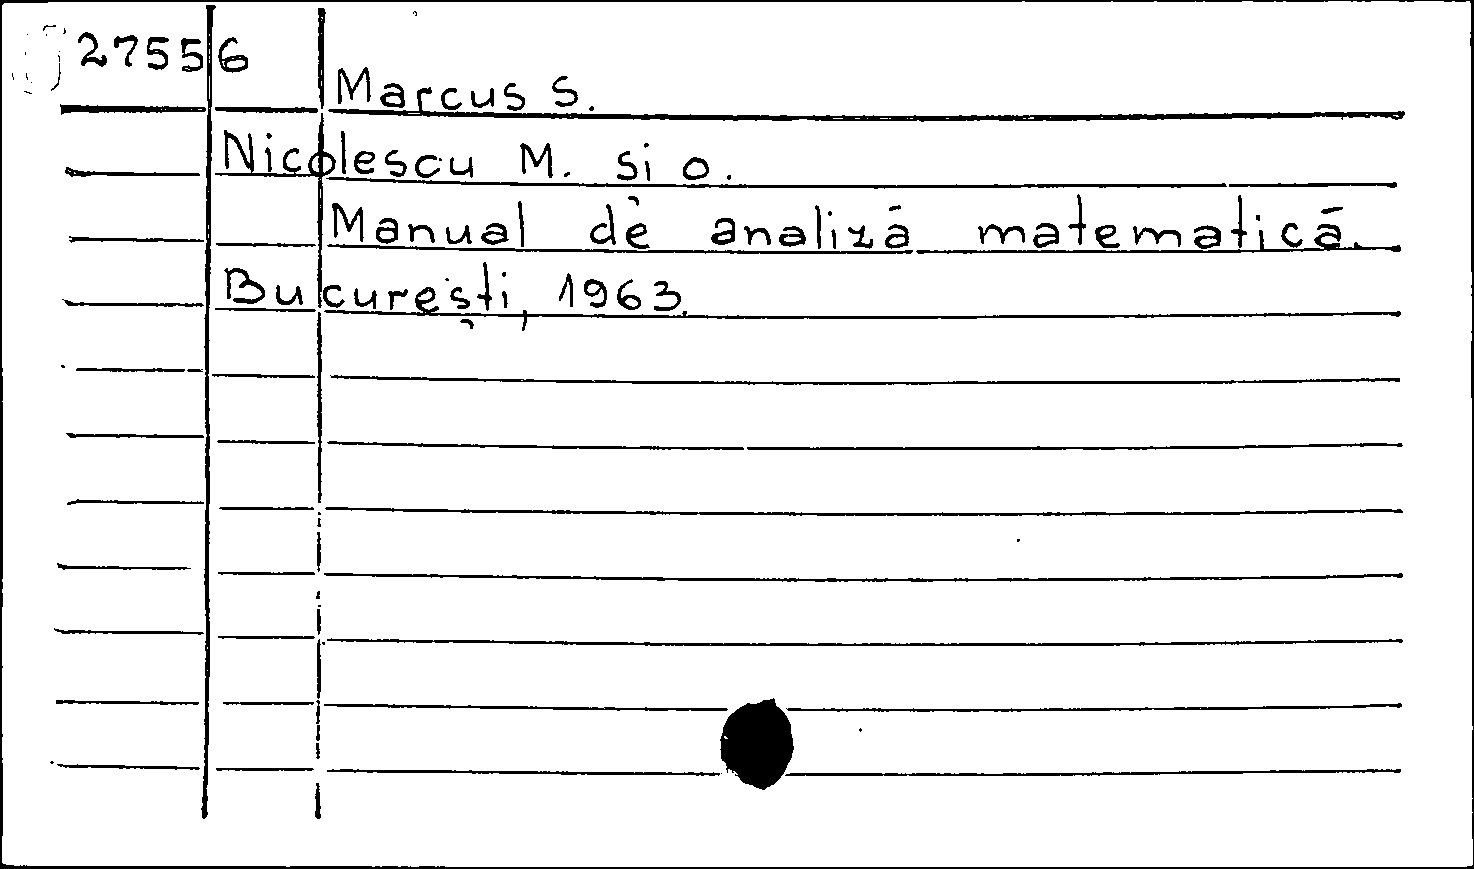 27556
Marcus S.
Nicolescu M. si o.
Manual de analiză matematică.
București, 1963.